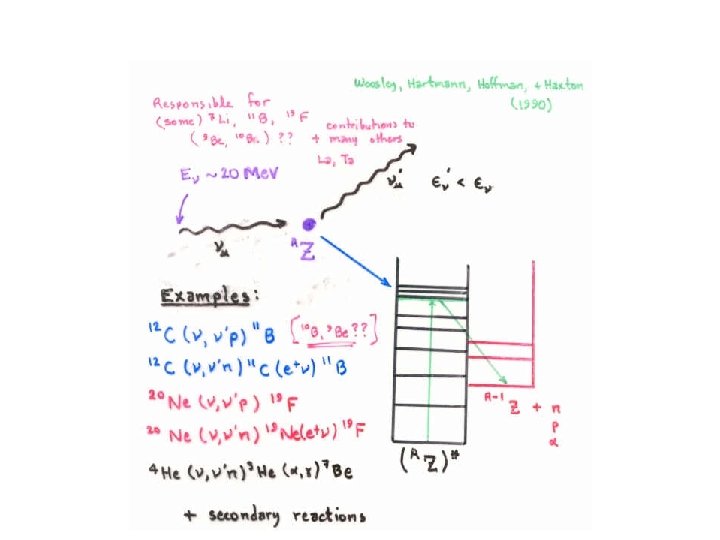 Woosley, Hartmann, Hoffman, + Haxton
(1990)
Responsible for
(some) ⁷Li, ¹¹B, ¹⁹F
(⁹Be, ¹⁰B.. ) ??
contributions to
+ many others
La, Ta
Eν ~ 20 MeV
νμ' εν' < εν
νμ
ᴬZ
Examples:
¹²C (ν, ν'p) ¹¹B [¹⁰B, ⁹Be ??]
¹²C (ν,ν'n) ¹¹C (e⁺ν) ¹¹B
²⁰Ne (ν,ν'p) ¹⁹F
²⁰Ne (ν,ν'n) ¹⁹Ne(e⁺ν) ¹⁹F
⁴He (ν,ν'n) ³He (α,γ) ⁷Be
+ secondary reactions
ᴬ⁻¹Z + n
p
α
(ᴬZ)*